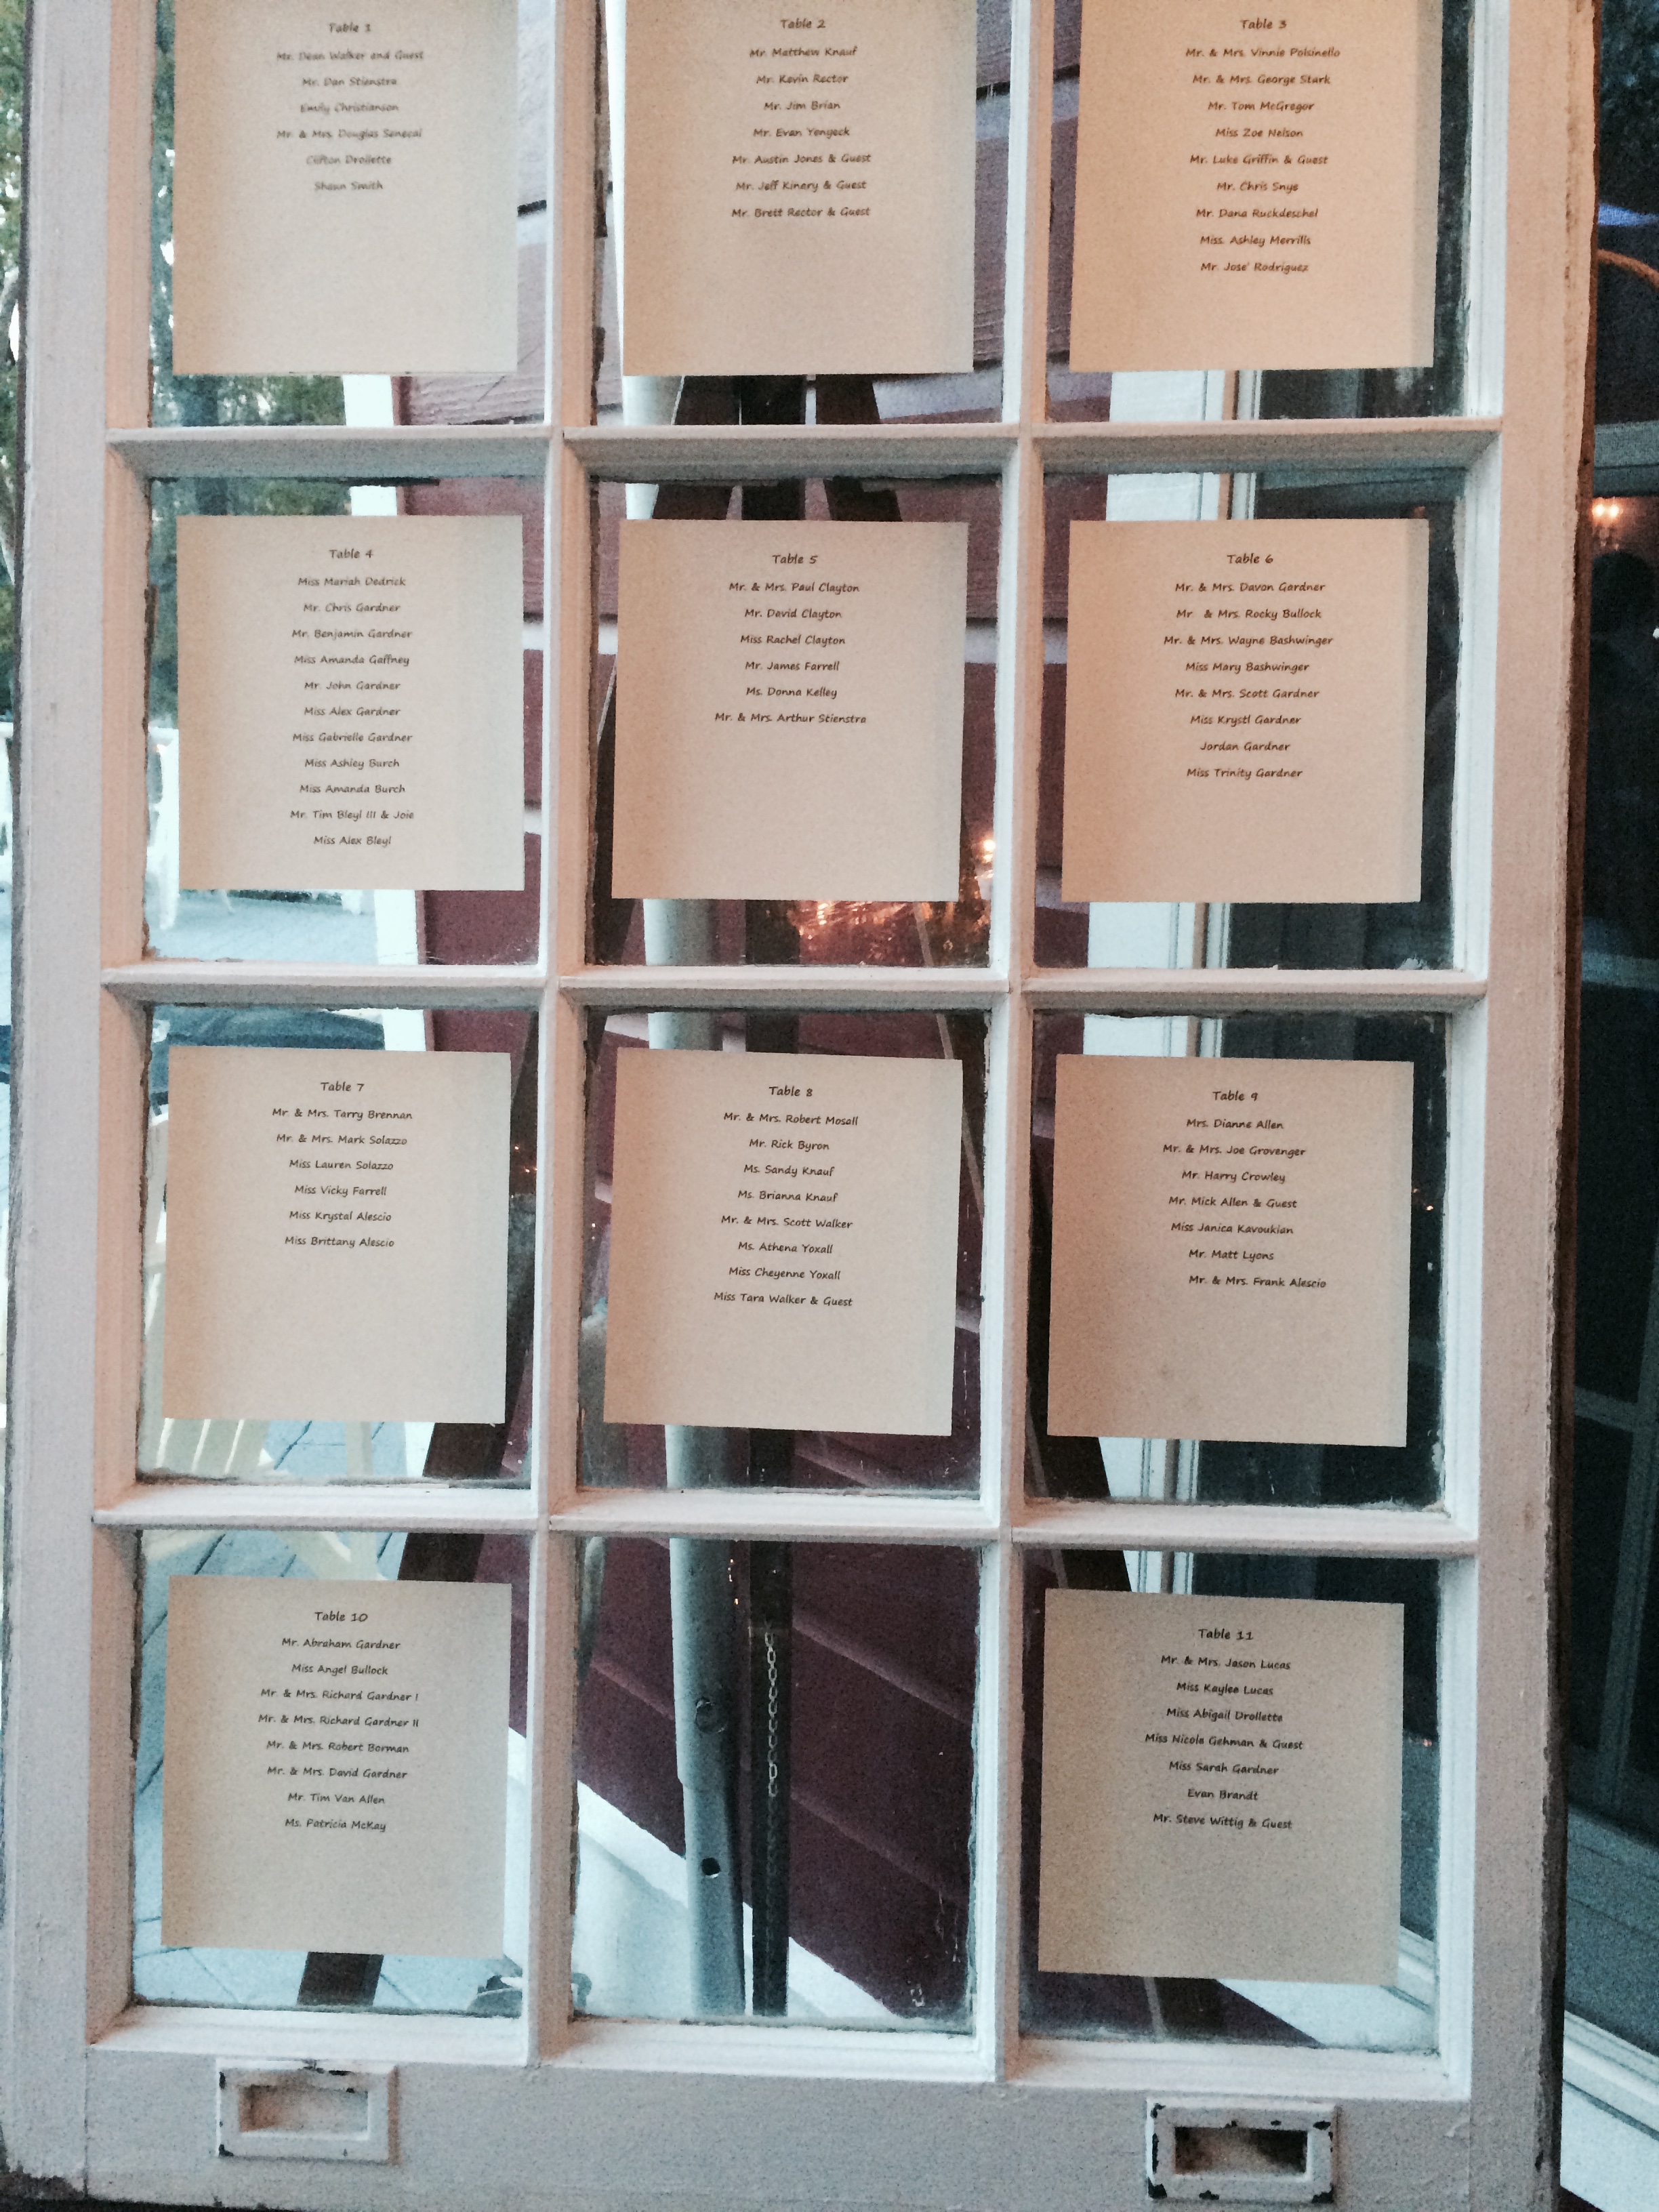 Table 1
Mr. Dean Walker and Guest
Mr. Dan Stienstra
Emily Christianson
Mr. & Mrs. Douglas Senecal
Clifton Drollette
Shaun Smith
Table 2
Mr. Matthew Knauf
Mr. Kevin Rector
Mr. Jim Brian
Mr. Evan Yengeck
Mr. Austin Jones & Guest
Mr. Jeff Kinary & Guest
Mr. Brett Rector & Guest
Table 3
Mr. & Mrs. Vinnie Polsinello
Mr. & Mrs. George Stark
Mr. Tom McGregor
Miss Zoe Nelson
Mr. Luke Griffin & Guest
Mr. Chris Snye
Mr. Dana Ruckdeschel
Miss. Ashley Merrills
Mr. Jose' Rodriguez
Table 4
Miss Mariah Dedrick
Mr. Chris Gardner
Mr. Benjamin Gardner
Miss Amanda Gaffney
Mr. John Gardner
Miss Alex Gardner
Miss Gabrielle Gardner
Miss Ashley Burch
Miss Amanda Burch
Mr. Tim Bleyl III & Joie
Miss Alex Bleyl
Table 5
Mr. & Mrs. Paul Clayton
Mr. David Clayton
Miss Rachel Clayton
Mr. James Farrell
Ms. Donna Kelley
Mr. & Mrs. Arthur Stienstra
Table 6
Mr. & Mrs. Davon Gardner
Mr & Mrs. Rocky Bullock
Mr. & Mrs. Wayne Bashwinger
Miss Mary Bashwinger
Mr. & Mrs. Scott Gardner
Miss Krystl Gardner
Jordan Gardner
Miss Trinity Gardner
Table 7
Mr. & Mrs. Tarry Brennan
Mr. & Mrs. Mark Solazzo
Miss Lauren Solazzo
Miss Vicky Farrell
Miss Krystal Alescio
Miss Brittany Alescio
Table 8
Mr. & Mrs. Robert Mosall
Mr. Rick Byron
Ms. Sandy Knauf
Ms. Brianna Knauf
Mr. & Mrs. Scott Walker
Ms. Athena Yoxall
Miss Cheyenne Yoxall
Miss Tara Walker & Guest
Table 9
Mrs. Dianne Allen
Mr. & Mrs. Joe Grovenger
Mr. Harry Crowley
Mr. Mick Allen & Guest
Miss Janica Kavoukian
Mr. Matt Lyons
Mr. & Mrs. Frank Alescio
Table 10
Mr. Abraham Gardner
Miss Angel Bullock
Mr. & Mrs. Richard Gardner I
Mr. & Mrs. Richard Gardner II
Mr. & Mrs. Robert Borman
Mr. & Mrs. David Gardner
Mr. Tim Van Allen
Ms. Patricia McKay
Table 11
Mr. & Mrs. Jason Lucas
Miss Kaylea Lucas
Miss Abigail Drollette
Miss Nicole Gehman & Guest
Miss Sarah Gardner
Evan Brandt
Mr. Steve Wittig & Guest